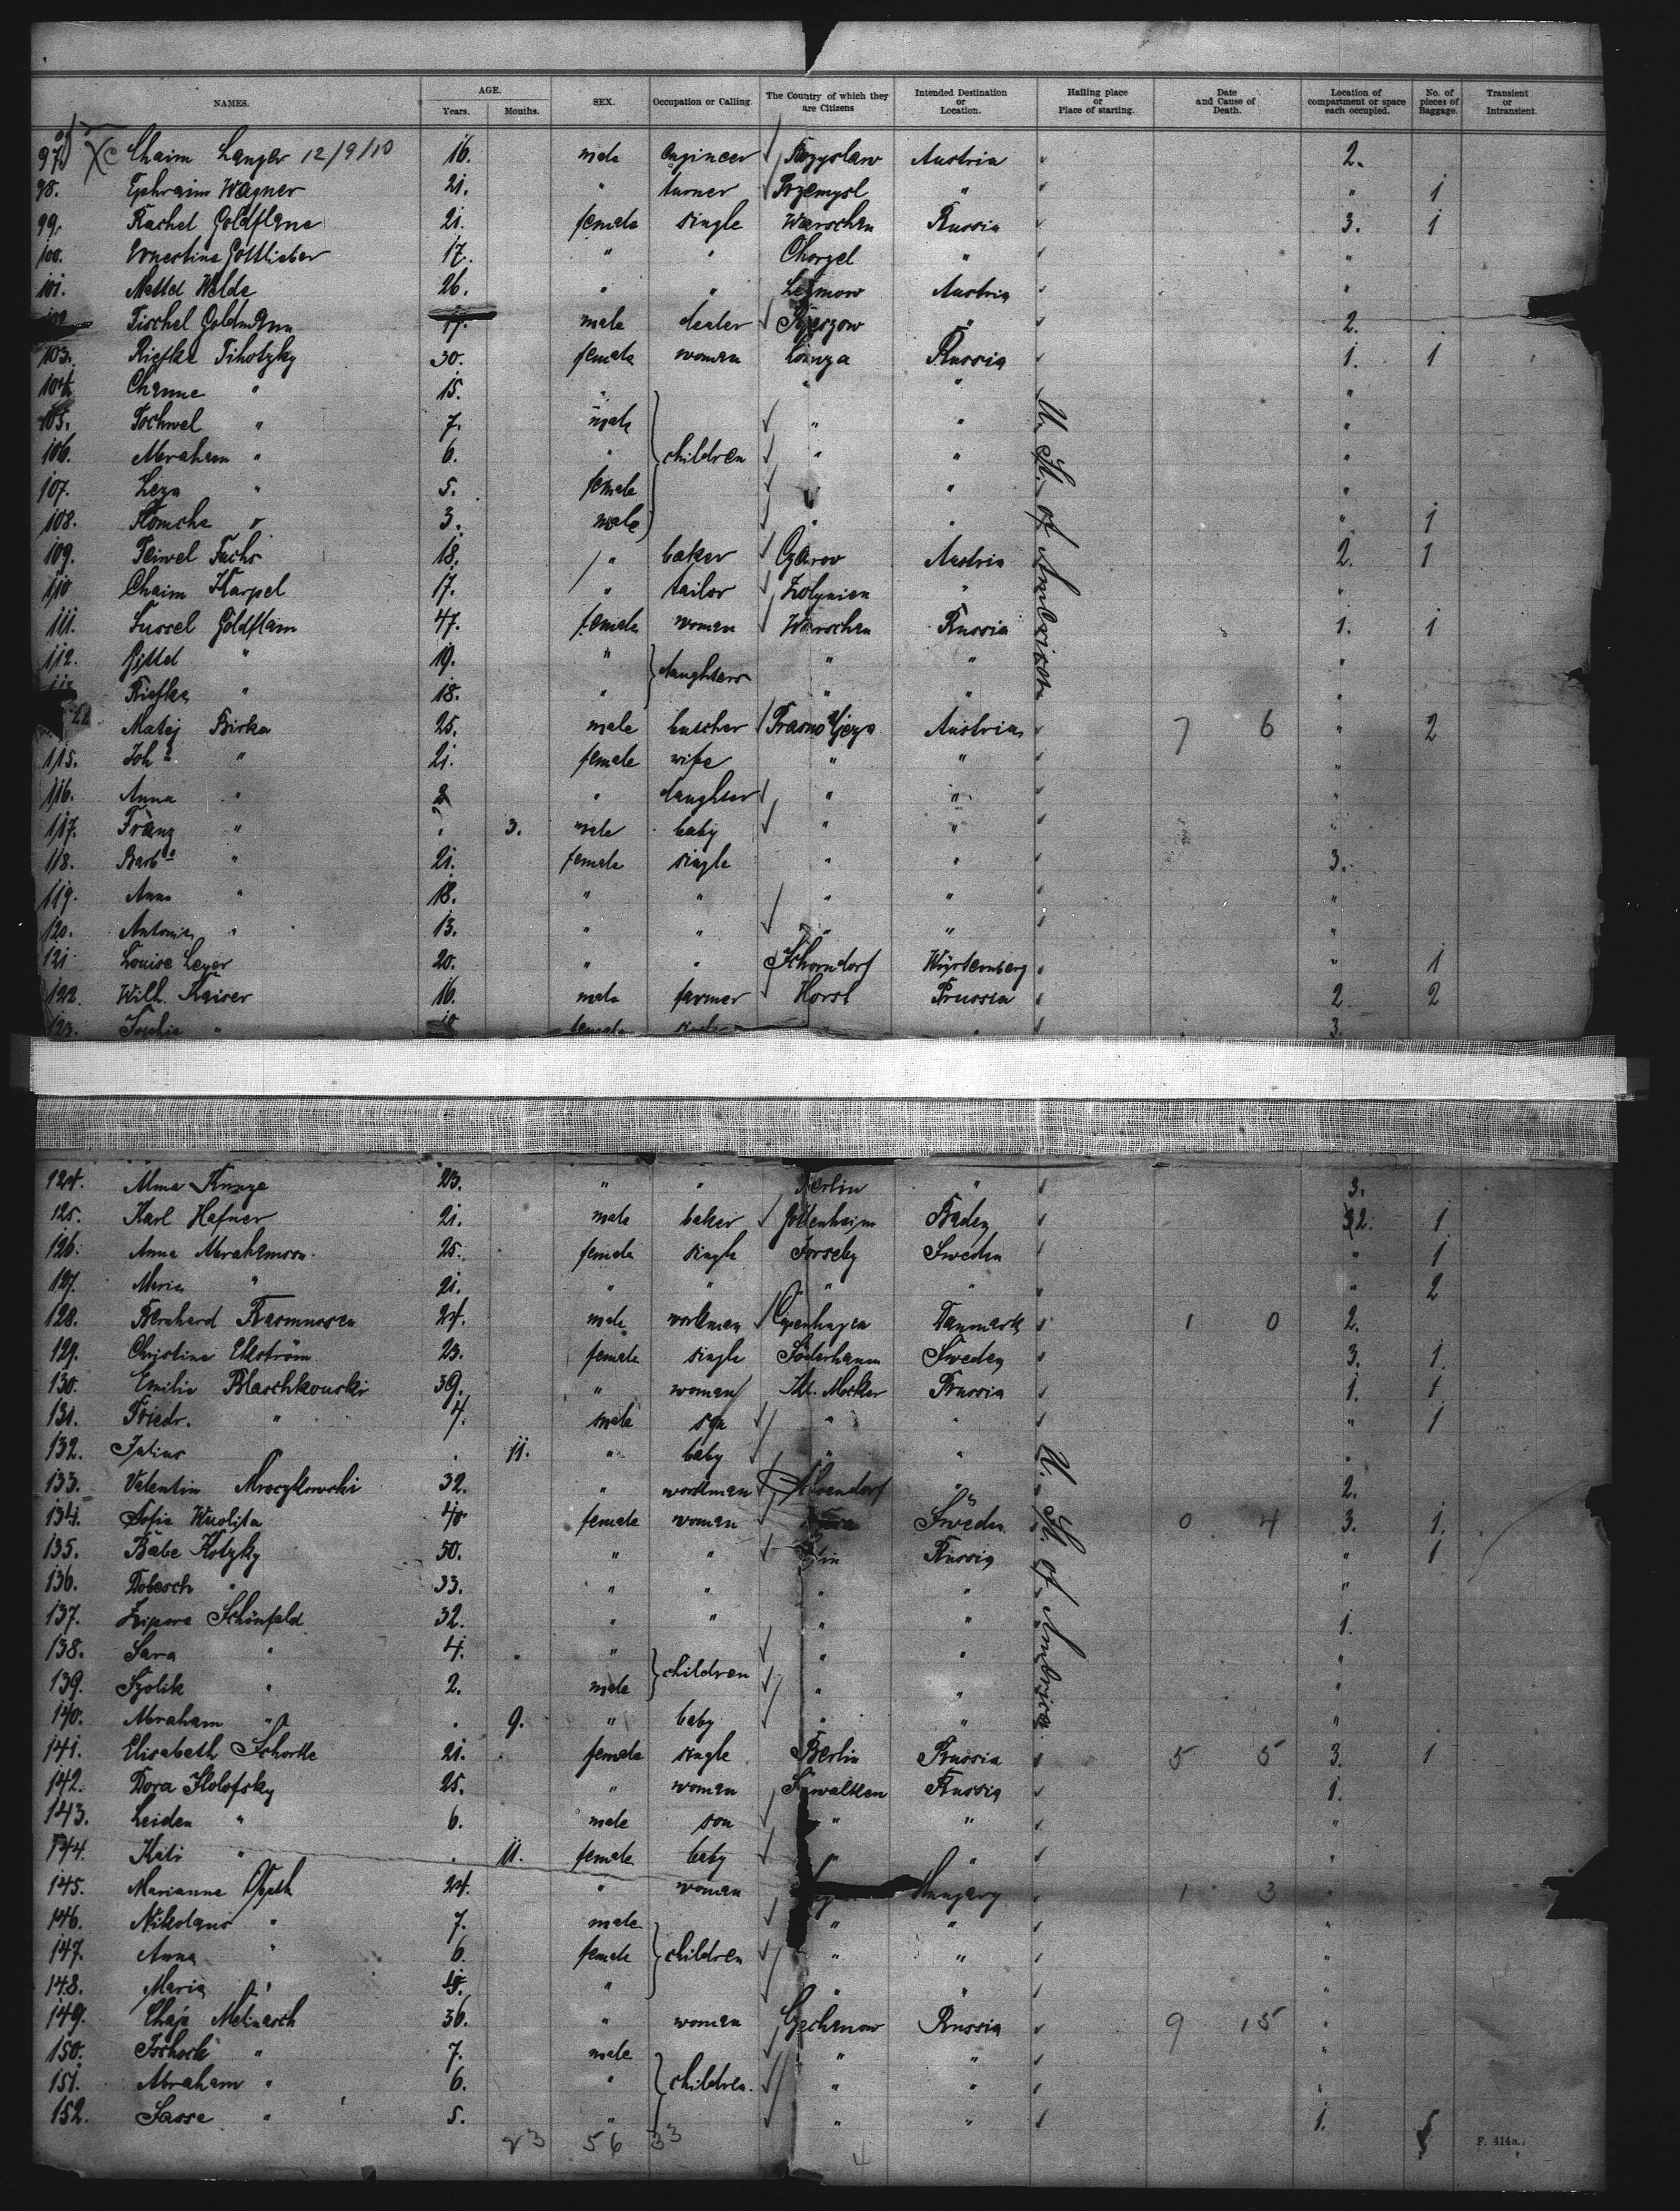 NAMES. AGE. Years. Months. SEX. Occupation or Calling. The Country of which they are Citizens Intended Destination or Location. Hailing place or Place of starting. Date and Cause of Death. Location of compartment or space each occupied. No. of pieces of Baggage. Transient or Intransient.
97. Chaim Langer 12/9/10 16. male engineer Austria 2.
98. Ephraim Wagner 21. " turner Przemysl " " 1
99. Rachel Goldflam 21. female single Warschau Russia 3. 1
100. Ernestine Gottlieber 17. " " Chorzel " "
101. 26. " " Austria "
Fischel Goldmann 17. male dealer " 2.
103. Riefke Tihotzky 30. female woman Lomza Russia 1. 1
104. Channe " 15. " " " "
105. " 7. male " " "
106. Abraham " 6. " children " " "
107. " 5. female " "
108. " 3. male " " " 1
109. Feiwel Fuchs 18. " baker Austria 2. 1
110 Chaim Karpel 17. " tailor Zolynien " "
111. Sussel Goldflam 47. female woman Warschau Russia 1. 1
112. Gittel " 19. " daughters " " "
Riefke " 18. " " " "
Matej Birka 25. male butcher Austria 7 6 " 2
115. Joha " 21. female wife " " "
116. Anna " 2 " daughter " " "
117. Franz " 3. male baby " " "
118. Barba " 21. female single " " 3.
119. Anna " 18. " " " " "
120. Antonia " 13. " " " " "
121 Louise 20. " " Schorndorf Würtemberg " 1
122. Wilh. Kaiser 16. male farmer Horst Prussia 2 2
123. Sophie " 18 female single " " 3.
U. St. of America
124. Alma 23. " " Berlin " 3.
125. Karl Hafner 21. male baker Gottenheim Baden 2. 1
126. Anna Abrahamson 25. female single Sweden " 1
127. Maria " 21. " " " " " 2
128. Bernhard Rasmussen 24. male workman Copenhagen Danmark 1 0 2.
129. Christina Ekström 23. female single Söderhamn Sweden 3. 1
130. Emilie Blaschkowski 39. " woman Kl. Mocker Prussia 1. 1
131. Friedr. " 4. male son " " " 1
132. Julius " 11. " baby " " "
133. Valentin Mroczkowski 32. " workman " 2.
134. Sofie 40 female woman Sweden 0 4 3. 1.
135. Babe Kotzky 50. " " Russia " 1
136. Dobesch " 33. " " " " "
137. Zipora Schönfeld 32. " " " " 1.
138. Sara " 4. " children " " "
139. " 2. male " " "
140. Abraham " 9. " baby " " "
141. Elisabeth 21. female single Berlin Prussia 5 5 3. 1
142. Dora Kolofsky 25. " woman Suwalken Russia 1.
143. Leiden " 6. male son " " "
144. Kati " 11. female baby " " "
145. Marianne 24. " woman Hungary 1 3 "
146. Nikolaus " 7. male " " "
147. Anna " 6. female children " " "
148. Maria " " " "
149. 36. " woman Russia 9 15 "
150. " 7. male " " "
151. Abraham " 6. " children. " " "
152. Sasse " 5. " " " 1.
U. St. of America
23 56 33
4
F. 414a.